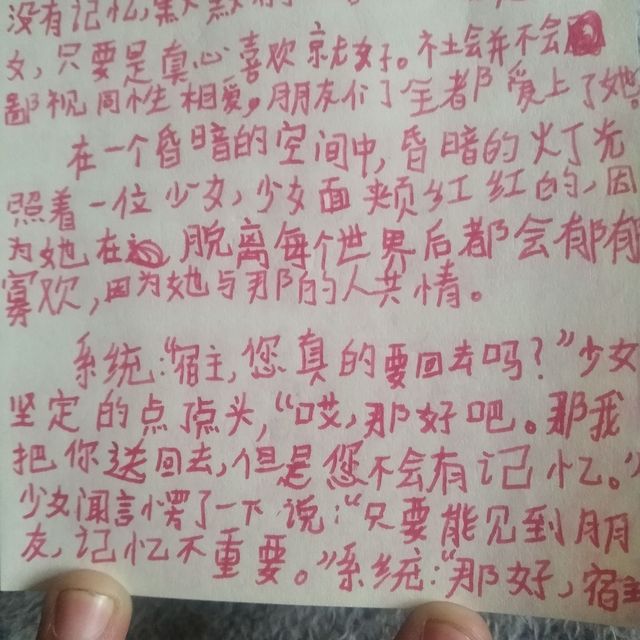 没有记忆,黑
女,只要是真心喜欢就好。社会并不会
鄙视同性相爱。朋友们了全都爱上了她
在一个昏暗的空间中,昏暗的灯光
照着一位少女,少女面颊红红的,因
为她在脱离每个世界后都会郁郁
寡欢,因为她与那的人共情。
系统:“宿主,您真的要回去吗?”少女
坚定的点点头,“哎,那好吧。那我
把你送回去,但是您不会有记忆。”
少女闻言愣了一下说:“只要能见到朋
友,记忆不重要。”系统:“那好,宿主